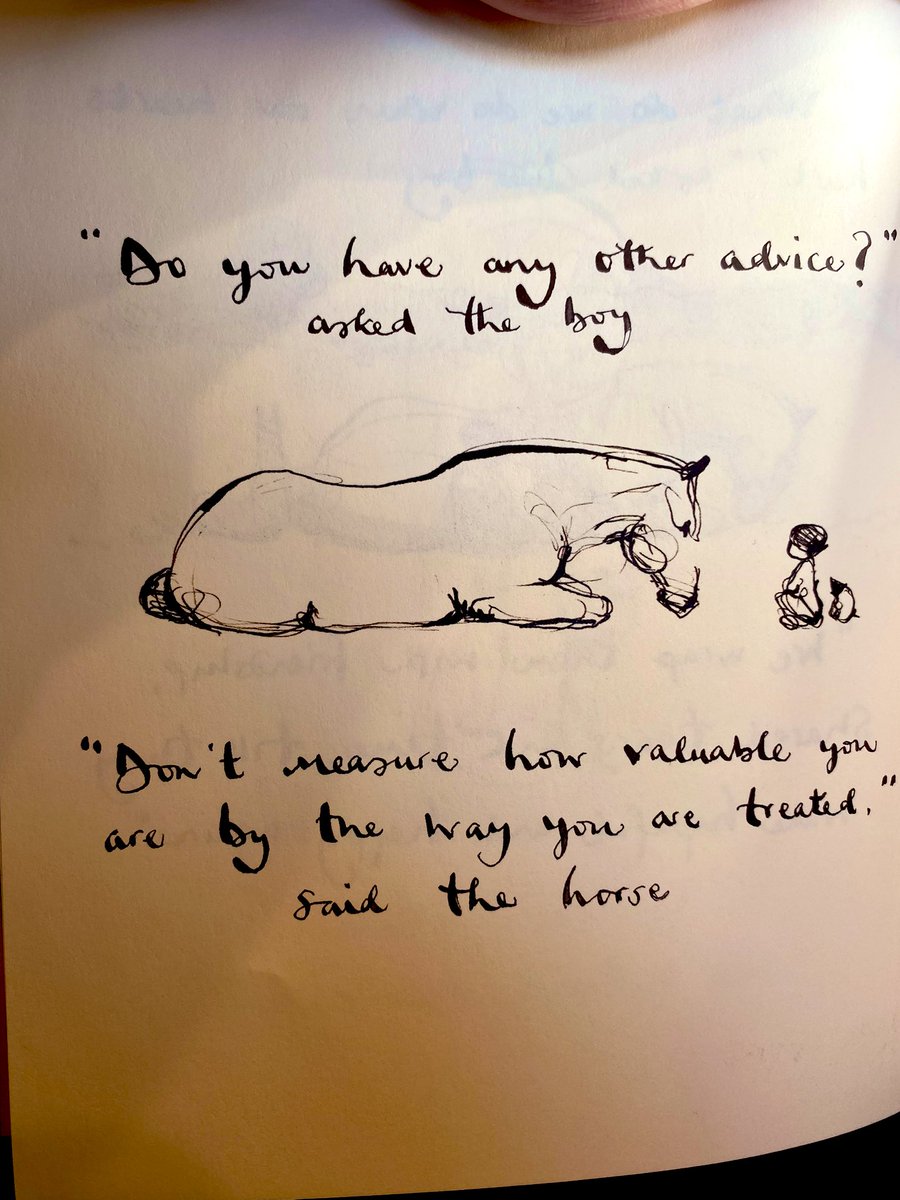 "Do you have any other advice?"
asked the boy
"Don't measure how valuable you
are by the way you are treated."
said the horse